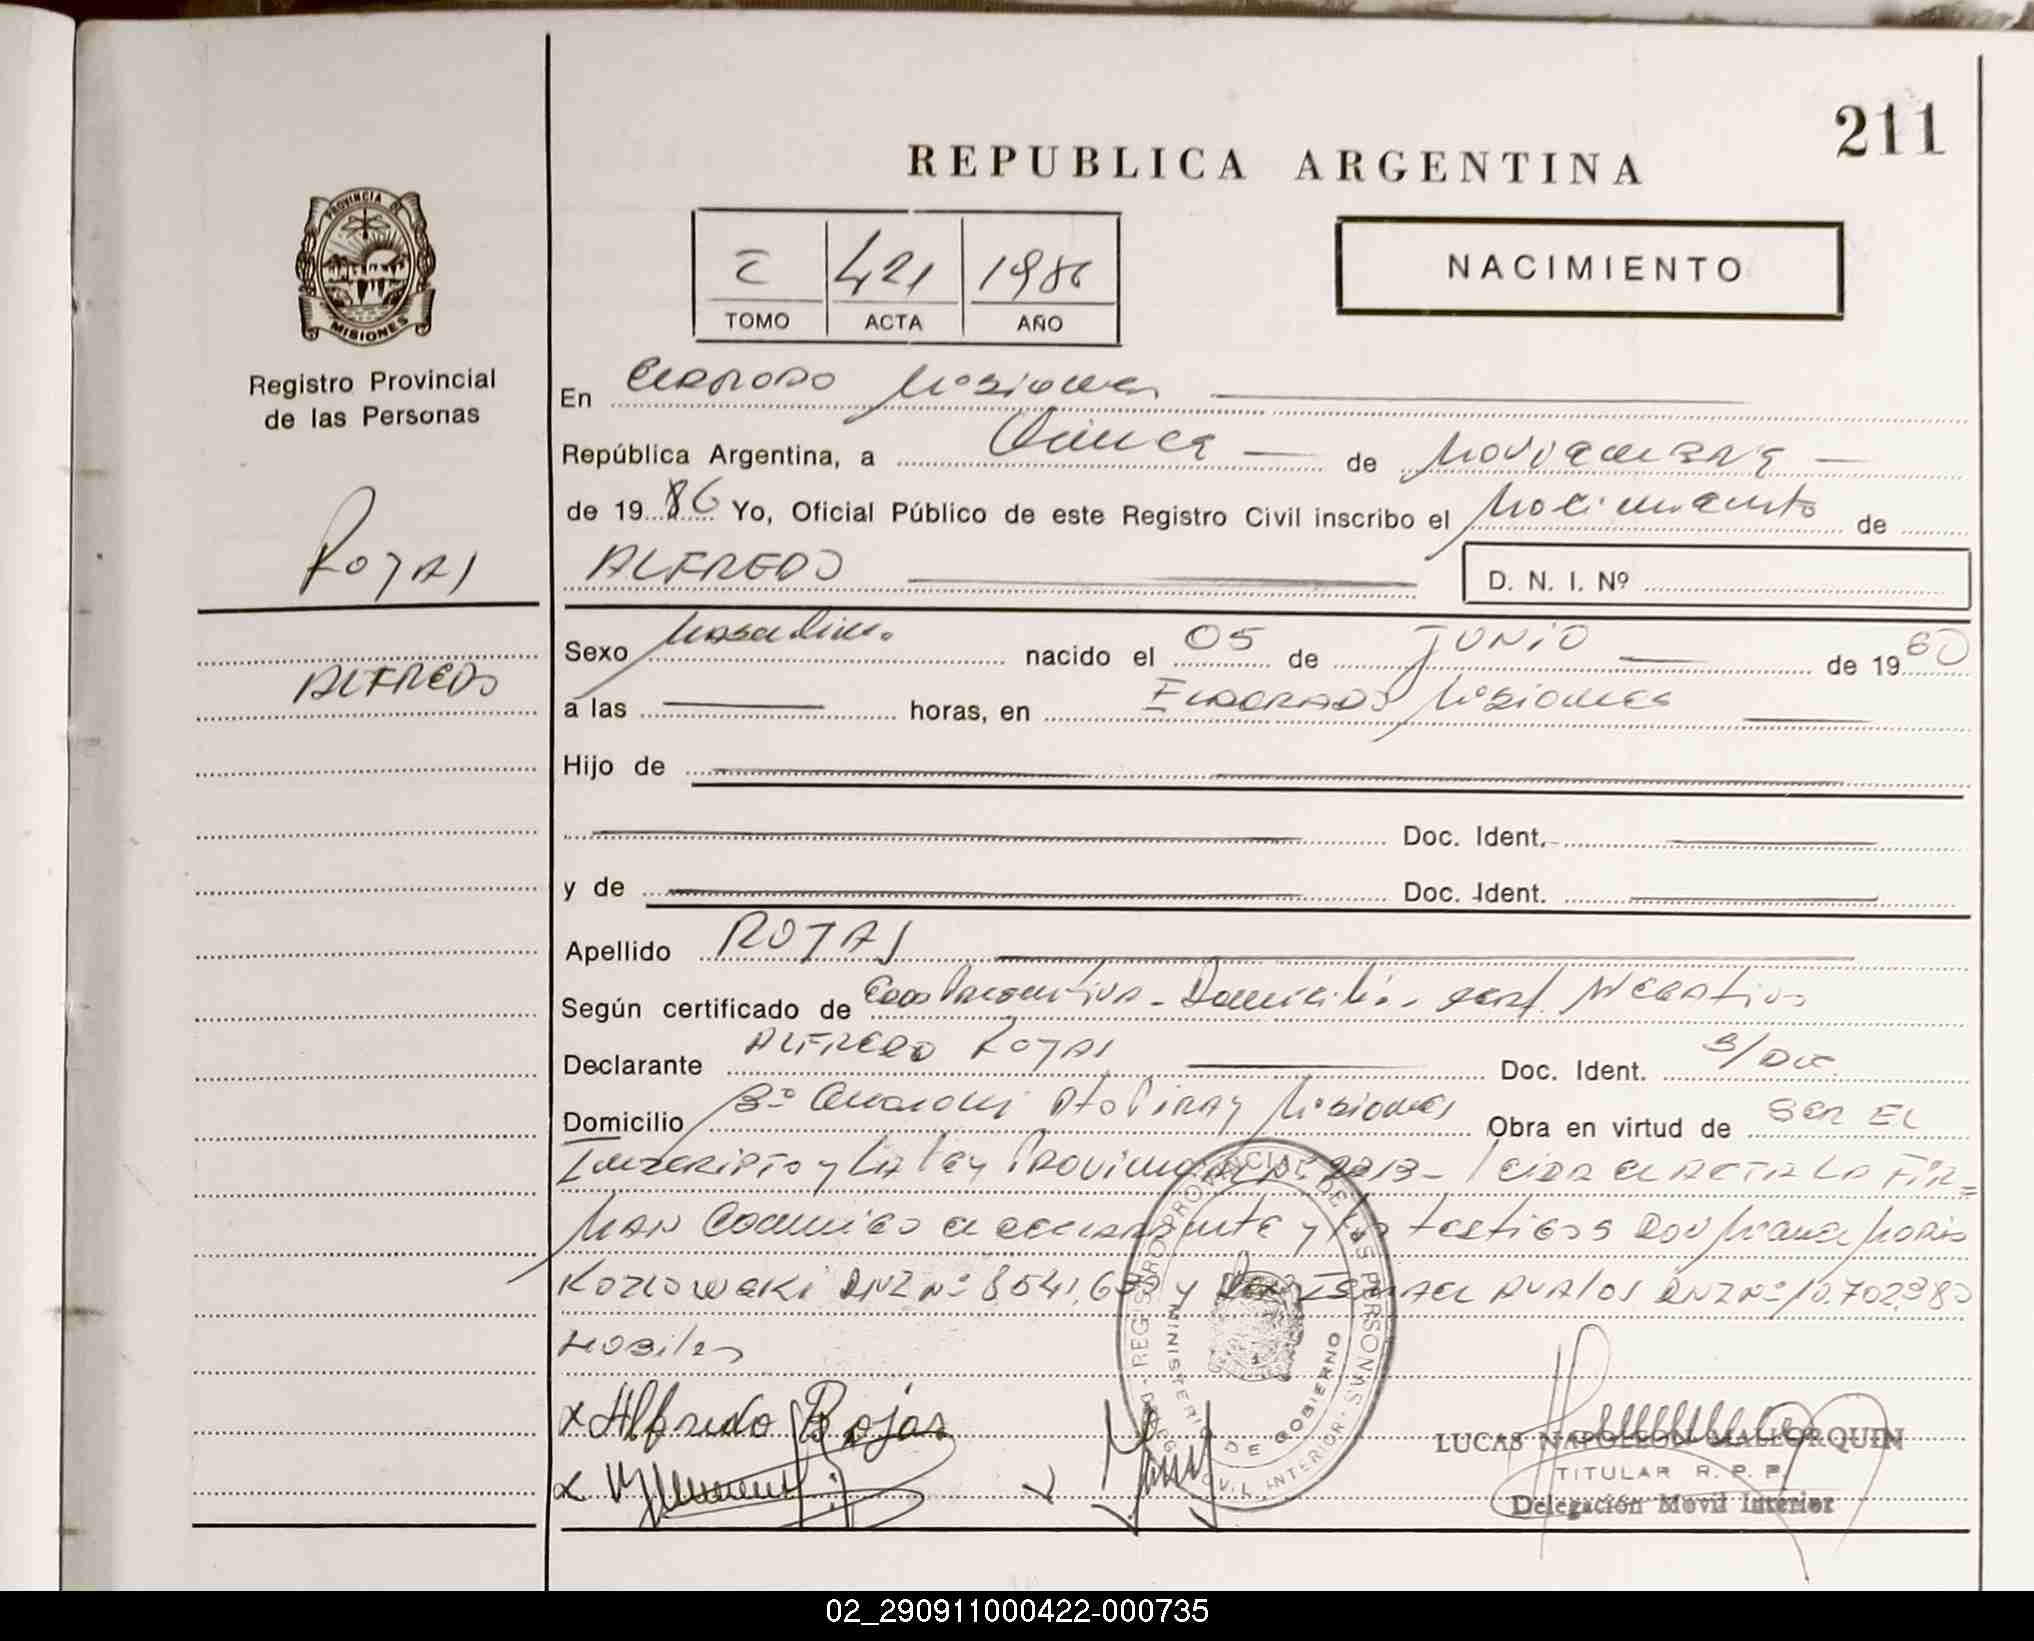 211
REPUBLICA ARGENTINA
PROVINCIA DE
MISIONES
Registro Provincial
de las Personas
421 1986
TOMO ACTA AÑO
NACIMIENTO
En Eldorado Misiones
República Argentina, a Quince de Noviembre
de 19 86 Yo, Oficial Público de este Registro Civil inscribo el Nacimiento de
ALFREDO
D. N. I. Nº
ROJAS
ALFREDO
Sexo Masculino nacido el 05 de JUNIO de 19 60
a las horas, en ELDORADO Misiones
Hijo de
Doc. Ident.
y de Doc. Ident.
Apellido ROJAS
Según certificado de Domicilio Negativo
Declarante ALFREDO ROJAS Doc. Ident. S/Doc.
Domicilio Bº Guaraní Pto Piray Misiones Obra en virtud de SER EL
Inscripto y La Ley Provincial Nº 2213 - Leida el ACTA LA FIR=
MAN Conmigo el declarante y los testigos Don Mario
Kozlowski DNI Nº 8541.630 y Don ISMAEL AVALOS DNI Nº 10.702.380
Hobiles
x Alfredo Rojas
REGISTRO PROVINCIAL DE LAS PERSONAS
MINISTERIO DE GOBIERNO
LUCAS NAPOLEON MALLORQUIN
TITULAR R. P. P.
Delegación Movil Interior
02_290911000422-000735